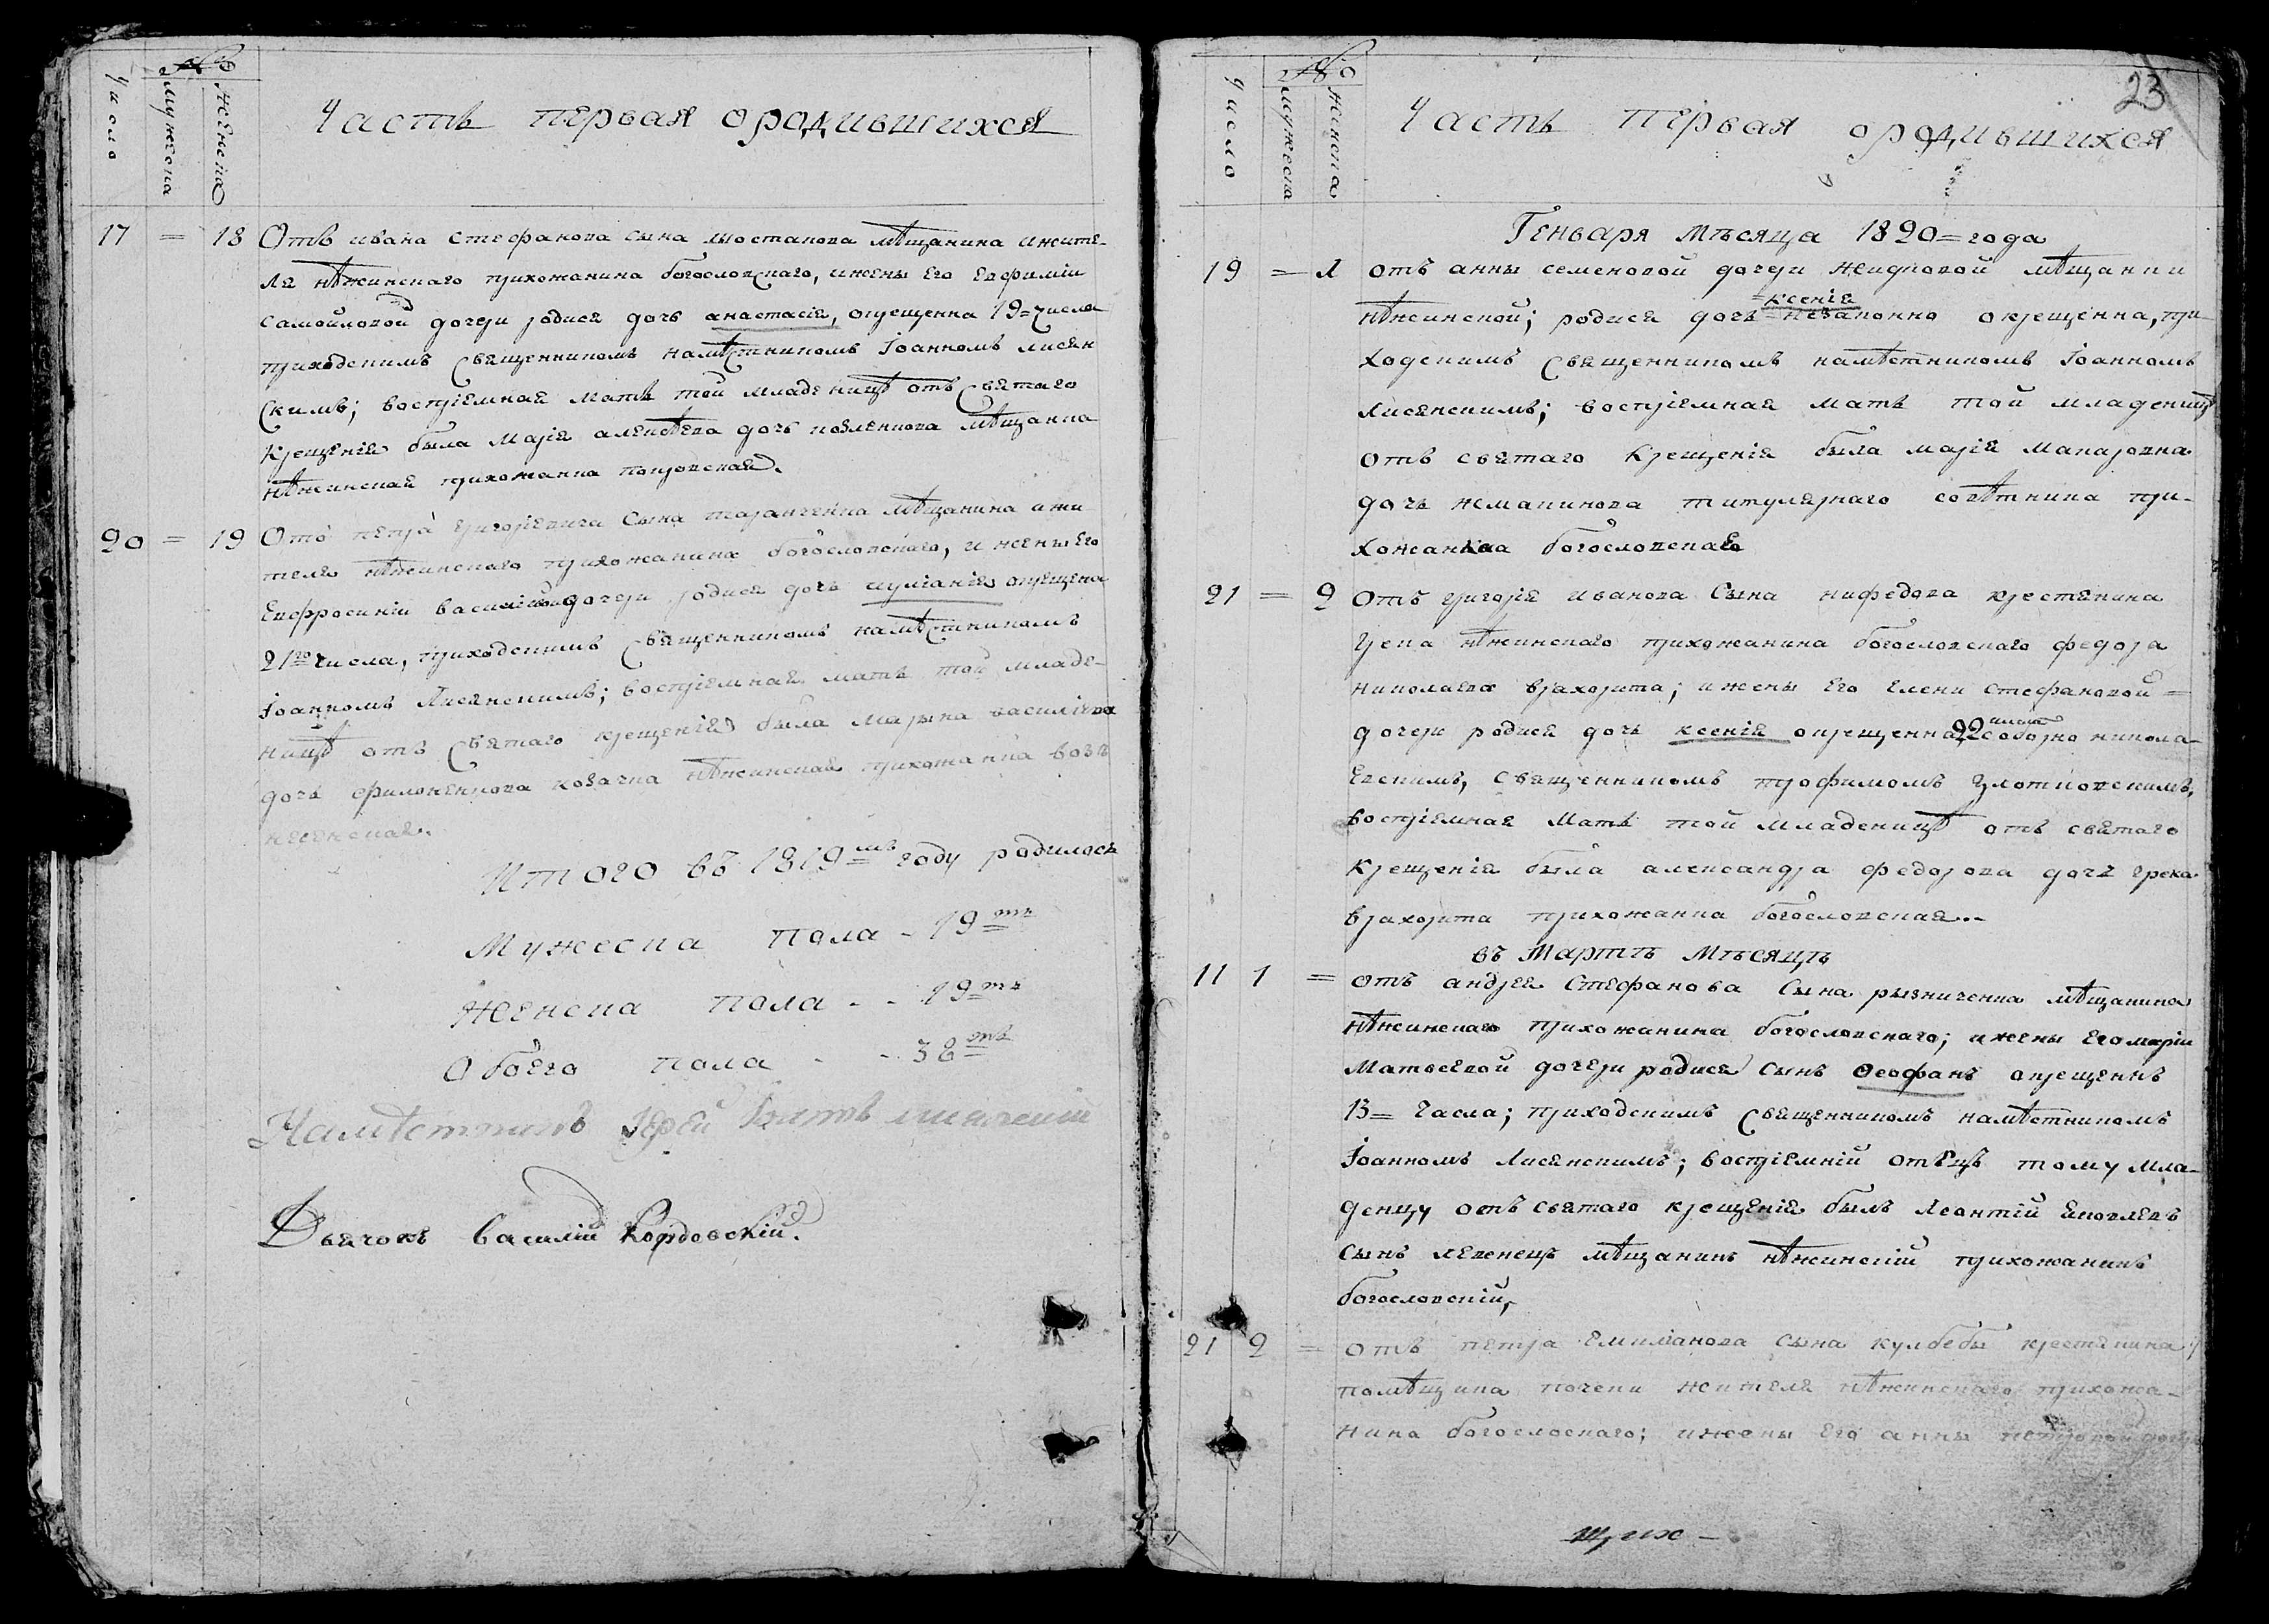 Число
№
мужеска
женска
Часть первая ородившихся
17 = 18 Отъ ивана стефанова сына мостакова мѣщанина ижите-
ля нѣжинскаго прихожанина богословскаго, ижены Его Евфиміи
самойловой дочери родися дочь анастасія, окрещенна 19= числа
приходскимъ священникомъ намѣстникомъ Іоанномъ лисян
скимъ; воспріемная мать той младеницѣ отъ святаго
крещенія была марія алексѣева дочь мѣщанка
нѣжинская прихожанка покровская.
20 = 19 Отъ петра григоріевича сына таранченка мѣщанина ижи
теля нѣжинскаго прихожанина богословскаго, и жены Его
Евфросиніи василіевой дочери родися дочь иуліанія окрещена
21го числа, приходскимъ священникомъ намѣстникомъ
Іоанномъ Лисянскимъ; воспріемная мать той младе-
ницѣ отъ святаго крещенія была марина василіева
дочь филоненкова козачка нѣжинская прихожанка возъ
несенская.
Итого въ 1819мъ году родилось
Мужеска пола - 19ть
Женска пола - - 19ть
Обоего пола - - 38мъ
Намѣстникъ Іерей
Дьячокъ Василій Кордовскій.
23
Число
№
мужеска
женска
Часть первая ородившихся
Генваря мѣсяца 1820= года
19 = 1 отъ анны семеновой дочери жидковой мѣщанки
=ксенія
нѣжинской; родися дочь = незаконно окрещенна, при-
ходскимъ священникомъ намѣстникомъ Іоанномъ
Лисянскимъ; воспріемная мать той младеницѣ
отъ святаго крещенія была марія макаровна
дочь жманинова титулярнаго совѣтника при-
хожанка богословская
21 = 2 Отъ григорія иванова сына нифедова крестянина
грека нѣжинскаго прихожанина богословскаго федора
николаева врахорита; ижены Его Елени стефановой =
дочери родися дочь ксенія окрещенна 22 числа соборно никола-
Евскимъ, священникомъ трофимомъ Злотковскимъ,
воспріемная мать той младеницѣ отъ святаго
крещенія была александра федорова дочь грека
врахорита прихожанка богословская..-
въ Мартѣ Мѣсяцѣ
11 1 = отъ андрея Стефанова сына рызниченка мѣщанина
нѣжинскаго прихожанина богословскаго; ижены Его маріи
Матвеевой дочери родися сынъ Ѳеофанъ окрещенъ
13= Числа; приходскимъ священникомъ намѣстникомъ
Іоанномъ Лисянскимъ; воспріемній отецъ тому мла-
денцу отъ святаго крещенія былъ Леонтій Яковлевъ
сынъ левенецъ мѣщанинъ нѣжинскій прихожанинъ
богословскій,
21 2 = отъ петра Емиліанова сына кулбебы крестянина
помѣщика почеки жителя нѣжинскаго прихожа-
нина богословскаго; ижены Его анны петровой дочери